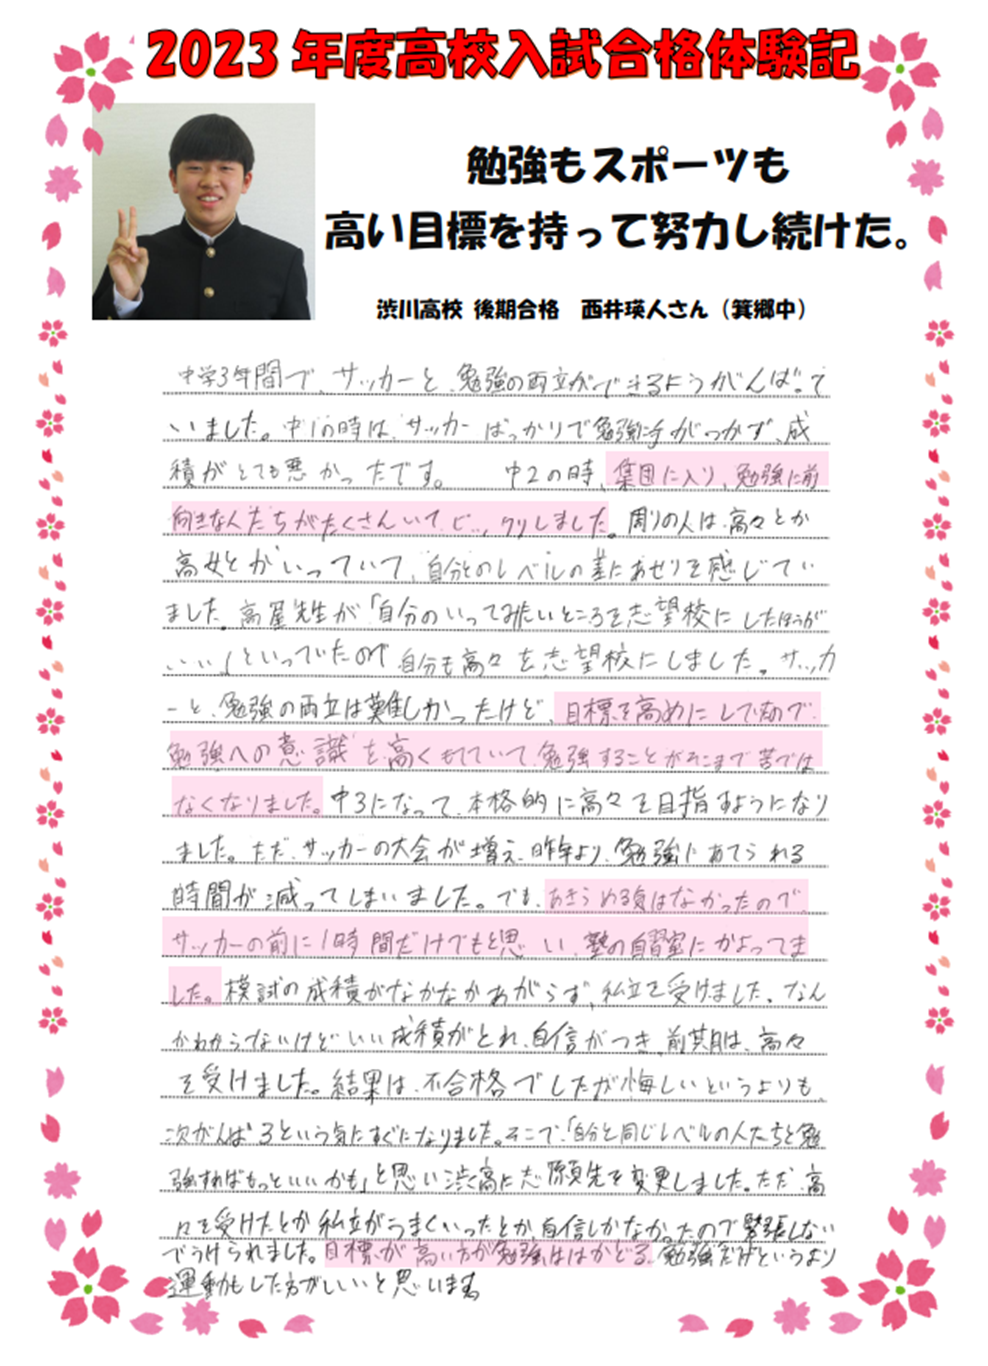 2023年度高校入試合格体験記
勉強もスポーツも
高い目標を持って努力し続けた。
渋川高校 後期合格 西井瑛人さん（箕郷中）
中学3年間で、サッカーと、勉強の両立ができるようがんばって
いました。中1の時は、サッカーばっかりで勉強に手がつかず、成
積がとても悪かったです。 中2の時、集団に入り、勉強に前
向きな人たちがたくさんいて、ビックリしました。周りの人は、高々とか
高女とかいっていて、自分とのレベルの差にあせりを感じてい
ました。高屋先生が「自分のいってみたいところを志望校にしたほうが
いい」といっていたので自分も高々を志望校にしました。サッカ
ーと、勉強の両立は難しかったけど、目標を高めにしてたので、
勉強への意識を高くもてていて、勉強することがそこまで苦では
なくなりました。中3になって、本格的に高々を目指すようになり
ました。ただ、サッカーの大会が増え、昨年より、勉強にあてられる
時間が減ってしまいました。でも、あきらめる気はなかったので、
サッカーの前に1時間だけでもと思い、塾の自習室にかよってま
した。模試の成積がなかなかあがらず、私立を受けました。なん
かわからないけどいい成積がとれ、自信がつき、前期は、高々
を受けました。結果は、不合格でしたが悔しいというよりも、
次がんばろうという気にすぐになりました。そこで、「自分と同じレベルの人たちと勉
強すればもっといいかも」と思い渋高に志願先を変更しました。ただ、高
々を受けたとか私立がうまくいったとか自信しかなかったので緊張しない
でうけられました。目標が高い方が勉強ははかどる。勉強だけというより
運動もした方がいいと思います